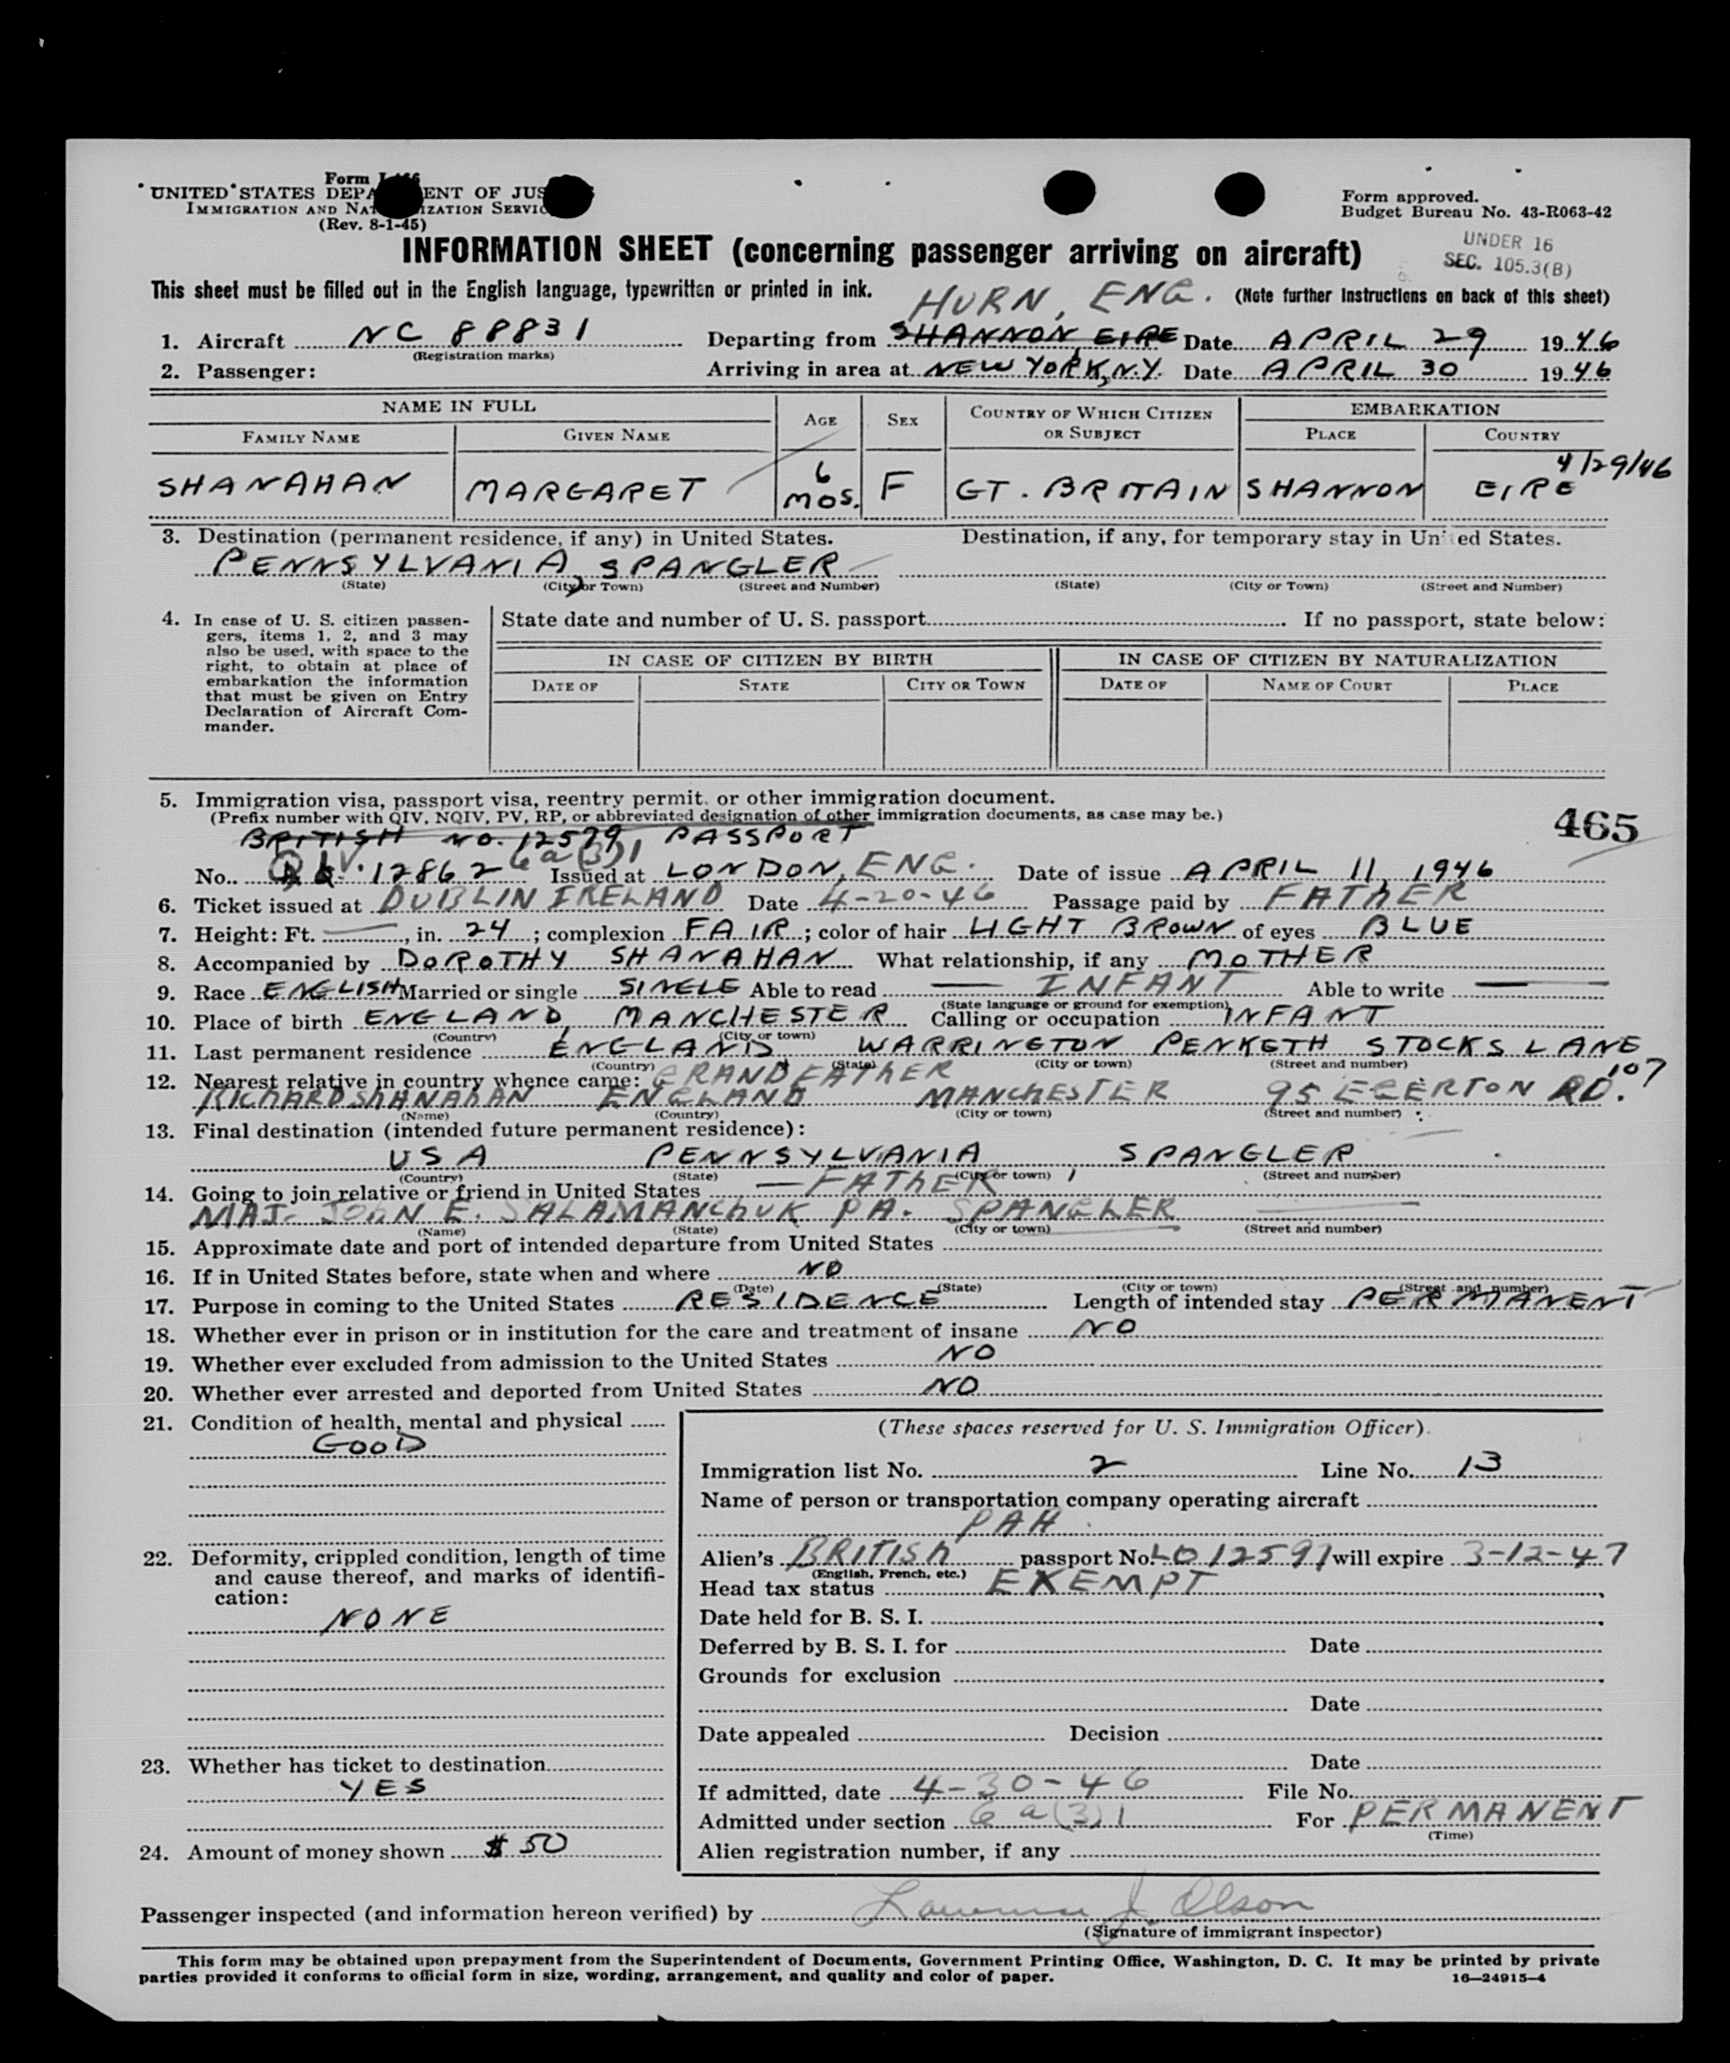 Form I-466
UNITED STATES DEPARTMENT OF JUSTICE
IMMIGRATION AND NATURALIZATION SERVICE
(Rev. 8-1-45)
Form approved.
Budget Bureau No. 43-R063-42
UNDER 16
SEC. 105.3(B)
INFORMATION SHEET (concerning passenger arriving on aircraft)
This sheet must be filled out in the English language, typewritten or printed in ink. HURN, ENG. (Note further instructions on back of this sheet)
1. Aircraft NC 88831 Departing from SHANNON, EIRE Date APRIL 29 1946
(Registration marks)
2. Passenger: Arriving in area at NEW YORK, N.Y. Date APRIL 30 1946
NAME IN FULL AGE SEX COUNTRY OF WHICH CITIZEN OR SUBJECT EMBARKATION
FAMILY NAME GIVEN NAME PLACE COUNTRY
4/29/46
SHANAHAN MARGARET 6 MOS. F GT. BRITAIN SHANNON EIRE
3. Destination (permanent residence, if any) in United States. Destination, if any, for temporary stay in United States.
PENNSYLVANIA, SPANGLER
(State) (City or Town) (Street and Number) (State) (City or Town) (Street and Number)
4. In case of U. S. citizen passengers, items 1, 2, and 3 may also be used, with space to the right, to obtain at place of embarkation the information that must be given on Entry Declaration of Aircraft Commander.
State date and number of U. S. passport If no passport, state below:
IN CASE OF CITIZEN BY BIRTH IN CASE OF CITIZEN BY NATURALIZATION
DATE OF STATE CITY OR TOWN DATE OF NAME OF COURT PLACE
5. Immigration visa, passport visa, reentry permit, or other immigration document.
(Prefix number with QIV, NQIV, PV, RP, or abbreviated designation of other immigration documents, as case may be.)
465
BRITISH NO. 12579 PASSPORT
No. QIV. 12862 6a(3)1 Issued at LONDON, ENG. Date of issue APRIL 11, 1946
6. Ticket issued at DUBLIN IRELAND Date 4-20-46 Passage paid by FATHER
7. Height: Ft. —, in. 24; complexion FAIR; color of hair LIGHT BROWN of eyes BLUE
8. Accompanied by DOROTHY SHANAHAN What relationship, if any MOTHER
9. Race ENGLISH Married or single SINGLE Able to read — INFANT Able to write —
(State language or ground for exemption)
10. Place of birth ENGLAND, MANCHESTER Calling or occupation INFANT
(Country) (City or town)
11. Last permanent residence ENGLAND, WARRINGTON PENKETH STOCKS LANE 107
(Country) (State) (City or town) (Street and number)
12. Nearest relative in country whence came: GRANDFATHER
RICHARD SHANAHAN ENGLAND MANCHESTER 95 EGERTON RD.
(Name) (Country) (City or town) (Street and number)
13. Final destination (intended future permanent residence):
USA PENNSYLVANIA, SPANGLER
(Country) (State) (City or town) (Street and number)
14. Going to join relative or friend in United States — FATHER
MAJ. JOHN E. SALAMANCHUK PA. SPANGLER
(Name) (State) (City or town) (Street and number)
15. Approximate date and port of intended departure from United States
16. If in United States before, state when and where NO
(Date) (State) (City or town) (Street and number)
17. Purpose in coming to the United States RESIDENCE Length of intended stay PERMANENT
18. Whether ever in prison or in institution for the care and treatment of insane NO
19. Whether ever excluded from admission to the United States NO
20. Whether ever arrested and deported from United States NO
21. Condition of health, mental and physical
GOOD
22. Deformity, crippled condition, length of time and cause thereof, and marks of identification:
NONE
23. Whether has ticket to destination
YES
24. Amount of money shown $50
(These spaces reserved for U. S. Immigration Officer).
Immigration list No. 2 Line No. 13
Name of person or transportation company operating aircraft
PAA
Alien's BRITISH passport No. LO 12597 will expire 3-12-47
(English, French, etc.)
Head tax status EXEMPT
Date held for B. S. I.
Deferred by B. S. I. for Date
Grounds for exclusion
Date
Date appealed Decision
Date
If admitted, date 4-30-46 File No.
Admitted under section 6a(3)1 For PERMANENT
(Time)
Alien registration number, if any
Passenger inspected (and information hereon verified) by Lawrence J. Olson
(Signature of immigrant inspector)
This form may be obtained upon prepayment from the Superintendent of Documents, Government Printing Office, Washington, D. C. It may be printed by private
parties provided it conforms to official form in size, wording, arrangement, and quality and color of paper. 16—24915-4